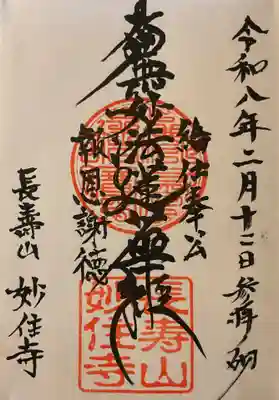 令和八年二月十二日参拝砌
給仕奉公
南無妙法蓮華経
報恩謝徳
長壽山 妙住寺
長寿山
妙住寺